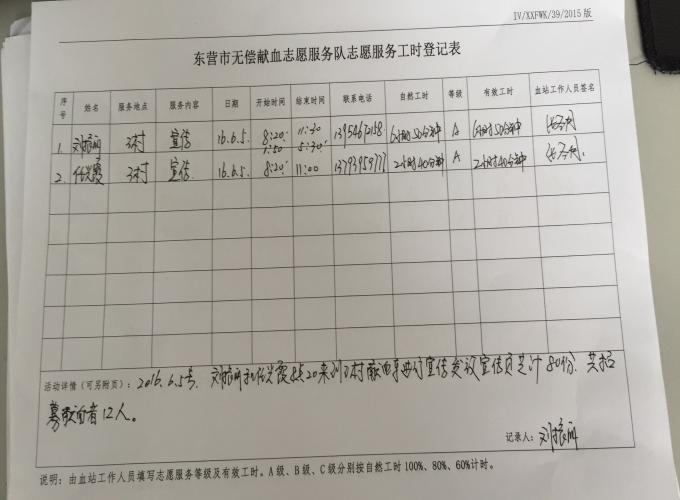 IV/XXFWK/39/2015版
东营市无偿献血志愿服务队志愿服务工时登记表
序号 姓名 服务地点 服务内容 日期 开始时间 结束时间 联系电话 自然工时 等级 有效工时 血站工作人员签名
1. 刘振 3村 宣传 16.6.5. 8:20 11:30 6小时50分钟 A 6小时50分钟
1:50 5:30
2. 任兴霞 3村 宣传 16.6.5. 8:20 11:00 2小时40分钟 A 2小时40分钟
活动详情(可另附页): 2016.6.5号. 刘振 和任兴霞8点20来到3村献血 宣传 发放宣传页共计80份. 共招
募献血者12人。
记录人: 刘振
说明:由血站工作人员填写志愿服务等级及有效工时。A级、B级、C级分别按自然工时100%、80%、60%计时。